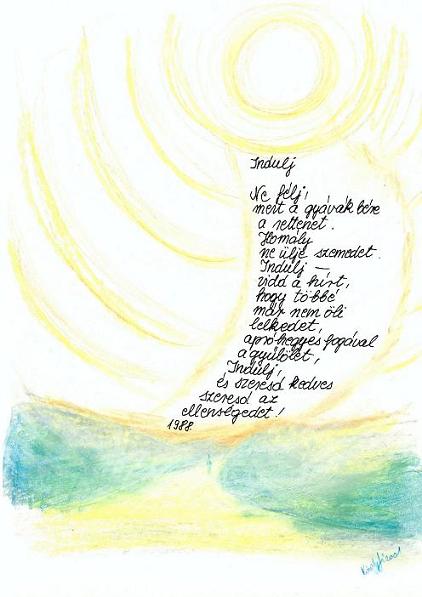 Indulj
Ne félj,
mert a gyávák bére
a rettenet.
Homály
ne ülje szemedet.
Indulj –
vidd a hírt,
hogy többé
már nem öli
lelkedet,
apró hegyes fogával
a gyűlölet,
Indulj,
és szeresd kedves
szeresd az
ellenségedet!
1988